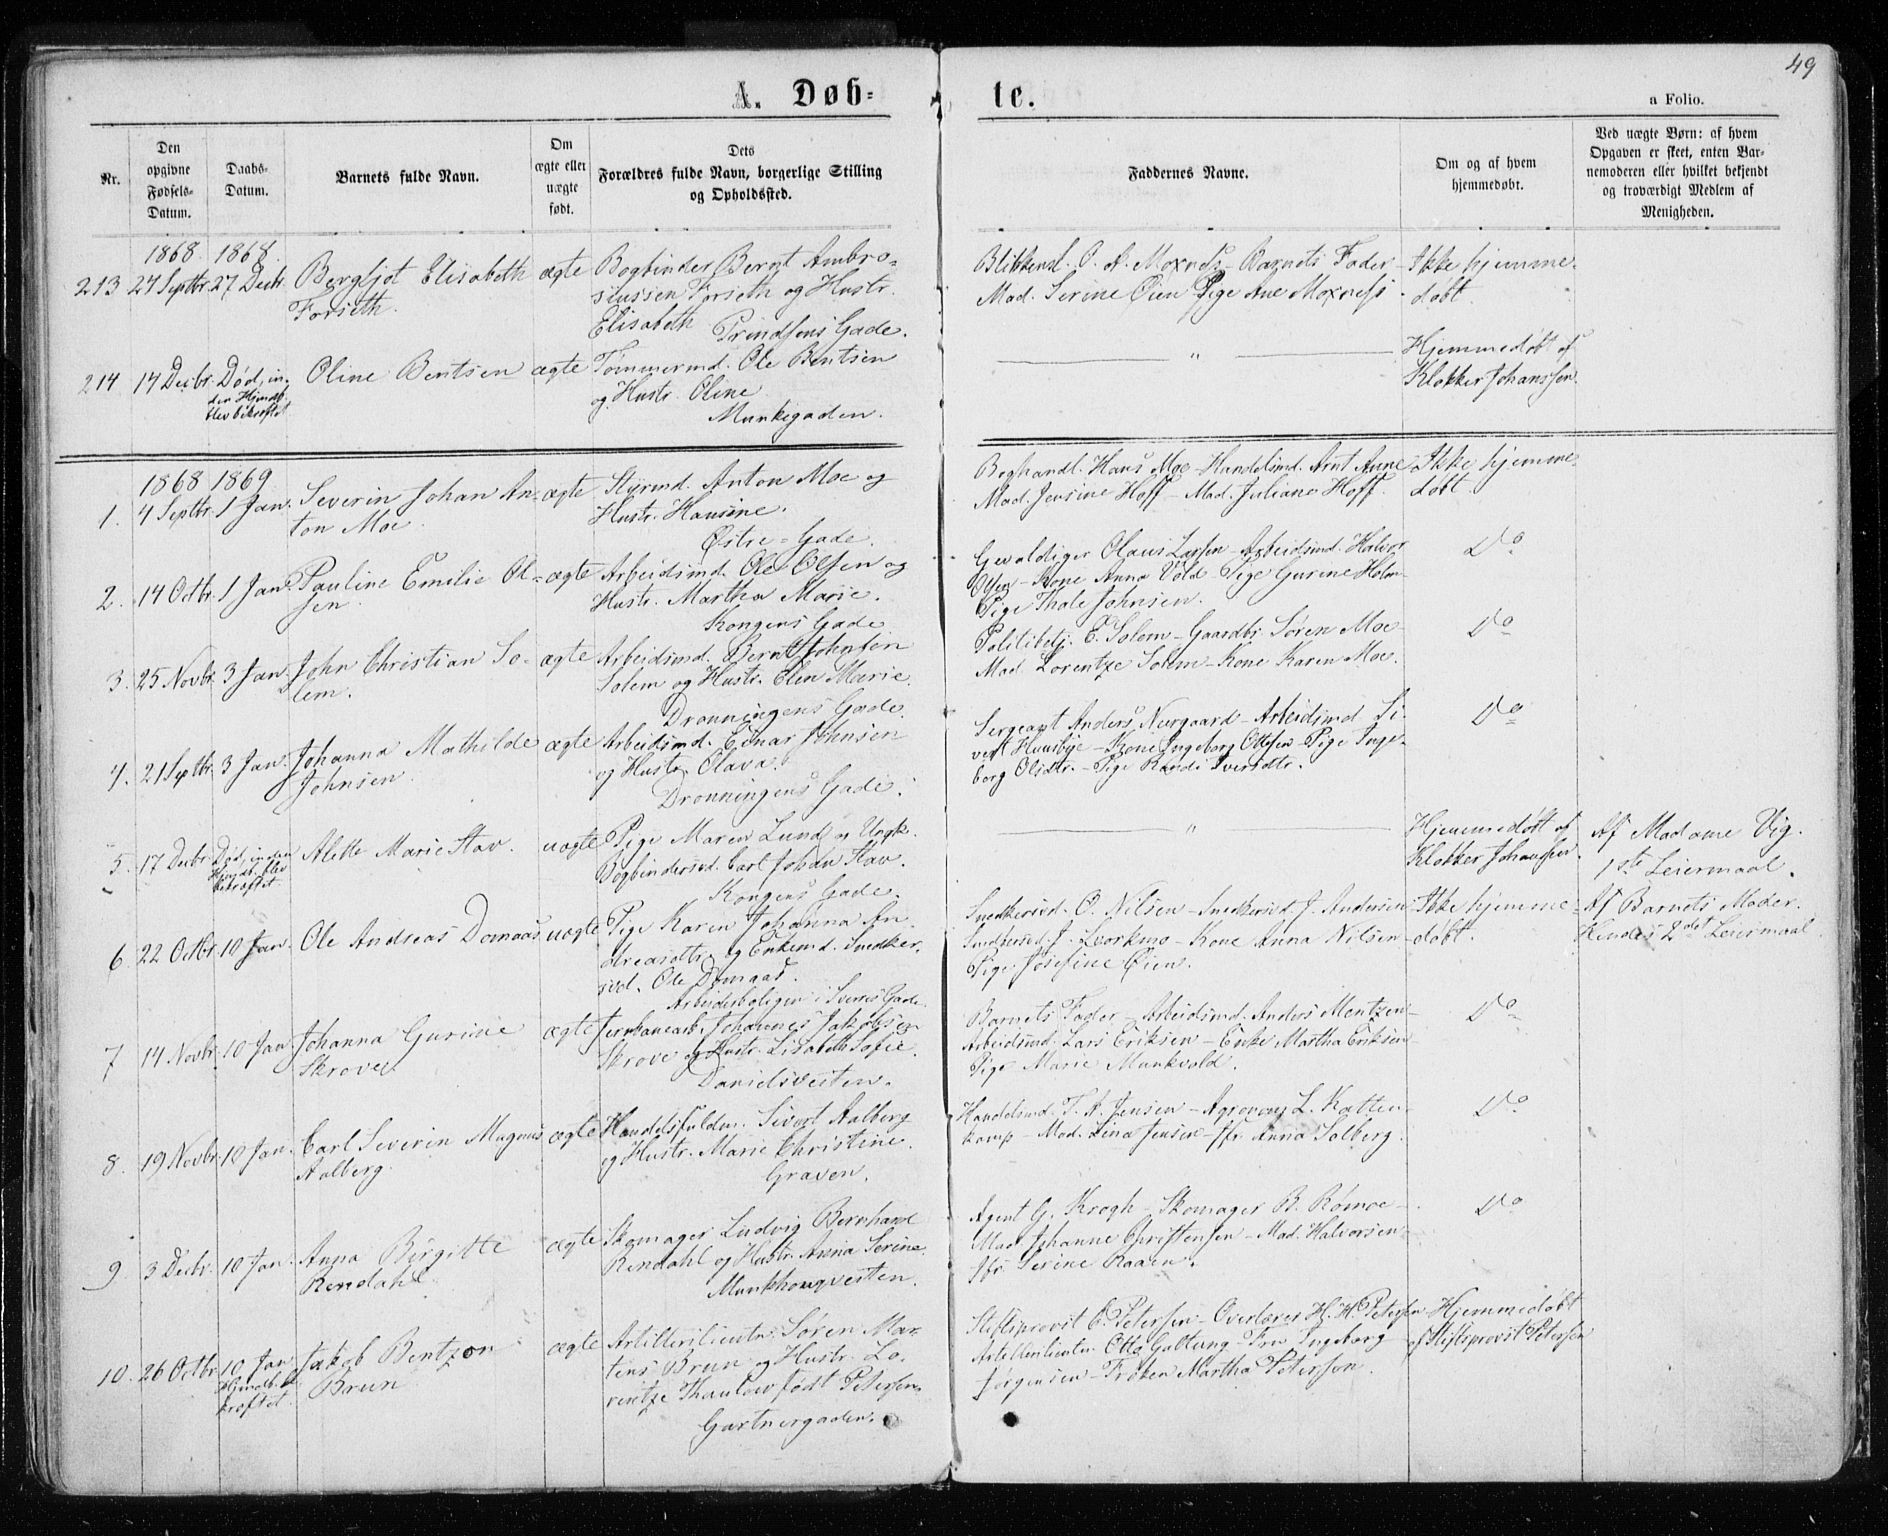 49
A. Døbte.
a Folio.
Nr.
Den opgivne Fødsels-Datum.
Daabs-Datum.
Barnets fulde Navn.
Om ægte eller uægte født.
Dets Forældres fulde Navn, borgerlige Stilling og Opholdssted.
Faddernes Navne.
Om og af hvem hjemmedøbt.
Ved uægte Børn: af hvem Opgaven er skeet, enten Barnemoderen eller hvilket bekjendt og troværdigt Medlem af Menigheden.
1868. 1868.
213 27 Septbr. 27 Decbr. Bergljot Elisabeth ægte Bogbinder Bernt Ambro-
Forseth. siussen Forseth og Hustr.
Elisabeth Prindsens Gade.
Blikkensl. O. A. Moxness - Barnets Fader - Ikke hjemme-
Mad. Serine Øien Pige Ane Moxness - døbt.
214 17 Decbr. Død, in- Oline Bentsen ægte Tømmermd. Ole Bentsen
den Hjmdb. og Hustr. Oline
blev bekræftet Munkegaden.
" Hjemmedøbt af
Klokker Johanssen.
1868 1869
1. 4 Septbr. 1 Jan. Severin Johan An- ægte Styrmd. Anton Moe og
ton Moe. Hustr. Hansine.
Østre-Gade.
Boghandl. Hans Moe - Handelsmd. Arnt Aune Ikke hjemme-
Mad. Jensine Hoff - Mad. Juliane Hoff. døbt.
2. 14 Octbr. 1 Jan. Pauline Emilie Ol- ægte Arbeidsmd. Ole Olsen og
sen. Hustr. Martha Marie.
Kongens Gade
Gevaldiger Olaus Larsen - Arbeidsmd. Halvor Do
Olsen - Kone Anna Vold - Pige Gurine Holm-
Pige Thale Johnsen.
3. 25 Novbr. 3 Jan. John Christian So- ægte Arbeidsmd. Bernt Johnsen
lem. Solem og Hustr. Elen Marie.
Dronningens Gade.
Politibetj. E. Solem - Gaardbr. Søren Moe - Do
Mad. Lorentze Solem - Kone Karen Moe.
4. 21 Septbr. 3 Jan. Johanna Mathilde ægte Arbeidsmd. Einar Johnsen
Johnsen og Hustr. Olava.
Dronningens Gade.
Sergeant Anders Nergaard - Arbeidsmd Si- Do
vert Huusbye - Kone Ingeborg Ottesen - Pige Inge-
borg Olsdtr. - Pige Randi Iversdtr.
5. 17 Decbr. Død, inden Alette Marie Stav. uægte Pige Maren Lund og Ungk.
Hjmdb. blev Bogbindersvd. Carl Johan Stav.
bekræftet Kongens Gade.
" Hjemmedøbt af Af Madame Vig.
Klokker Johanssen. 1ste Leiermaal.
6. 22 Octbr. 10 Jan. Ole Andreas Domaas uægte Pige Karen Johanna An-
dreasdtr. og Enkemd. Snedker-
svd. Ole Domaas.
Arbeiderboligen i Sverres Gade.
Snedkersvd. O. Nilsen - Snedkersvd. J. Andersen Ikke hjemme- Af Barnets Moder.
Snedkersvd. J. Leorkmo - Kone Anna Nilsen - døbt. Hendes 2det Leiermaal.
Pige Josefine Øien.
7 14 Novbr. 10 Jan Johanna Gurine ægte Jernbanearb. Johannes Jakobsen
Skrove. Skrove og Hustr. Lisabeth Sofie.
Danielsveiten.
Barnets Fader - Arbeidsmd. Anders Mentzen - Do
Arbeidsmd. Lars Eriksen - Enke Martha Eriksen -
Pige Marie Munkvold.
8. 19 Novbr. 10 Jan. Carl Severin Magnus ægte Handelsfuldm. Sivert Aalberg
Aalberg. og Hustr. Marie Christine.
Graven.
Handelsmd. T. A. Jensen - Agronom L. Katten- Do
kamp - Mad. Lina Jensen - Jfr. Anna Solberg.
9 3 Decbr. 10 Jan. Anna Birgitte ægte Skomager Ludvig Bernhard
Rendahl. Rendahl og Hustr. Anna Serine.
Munkhougveiten.
Agent G. Krogh - Skomager B. Rømoe - Do
Mad. Johanne Christensen - Mad. Halvorsen -
Jfr. Serine Raaen.
10. 26 Octbr. 10 Jan. Jakob Bentzon ægte Artilleriliutn. Søren Mar-
Hjmdb. be- Brun tens Brun og Hustr. Lo-
kræftet. rentze Thaulow født Petersen.
Gartnergaden.
Stiftsprovst C. Petersen - Overlærer H. H. Petersen Hjemmedøbt
Artilleriliutn. Otto Galtung - Fru Ingeborg af Stiftsprovst Petersen
Jørgensen - Frøken Martha Petersen.